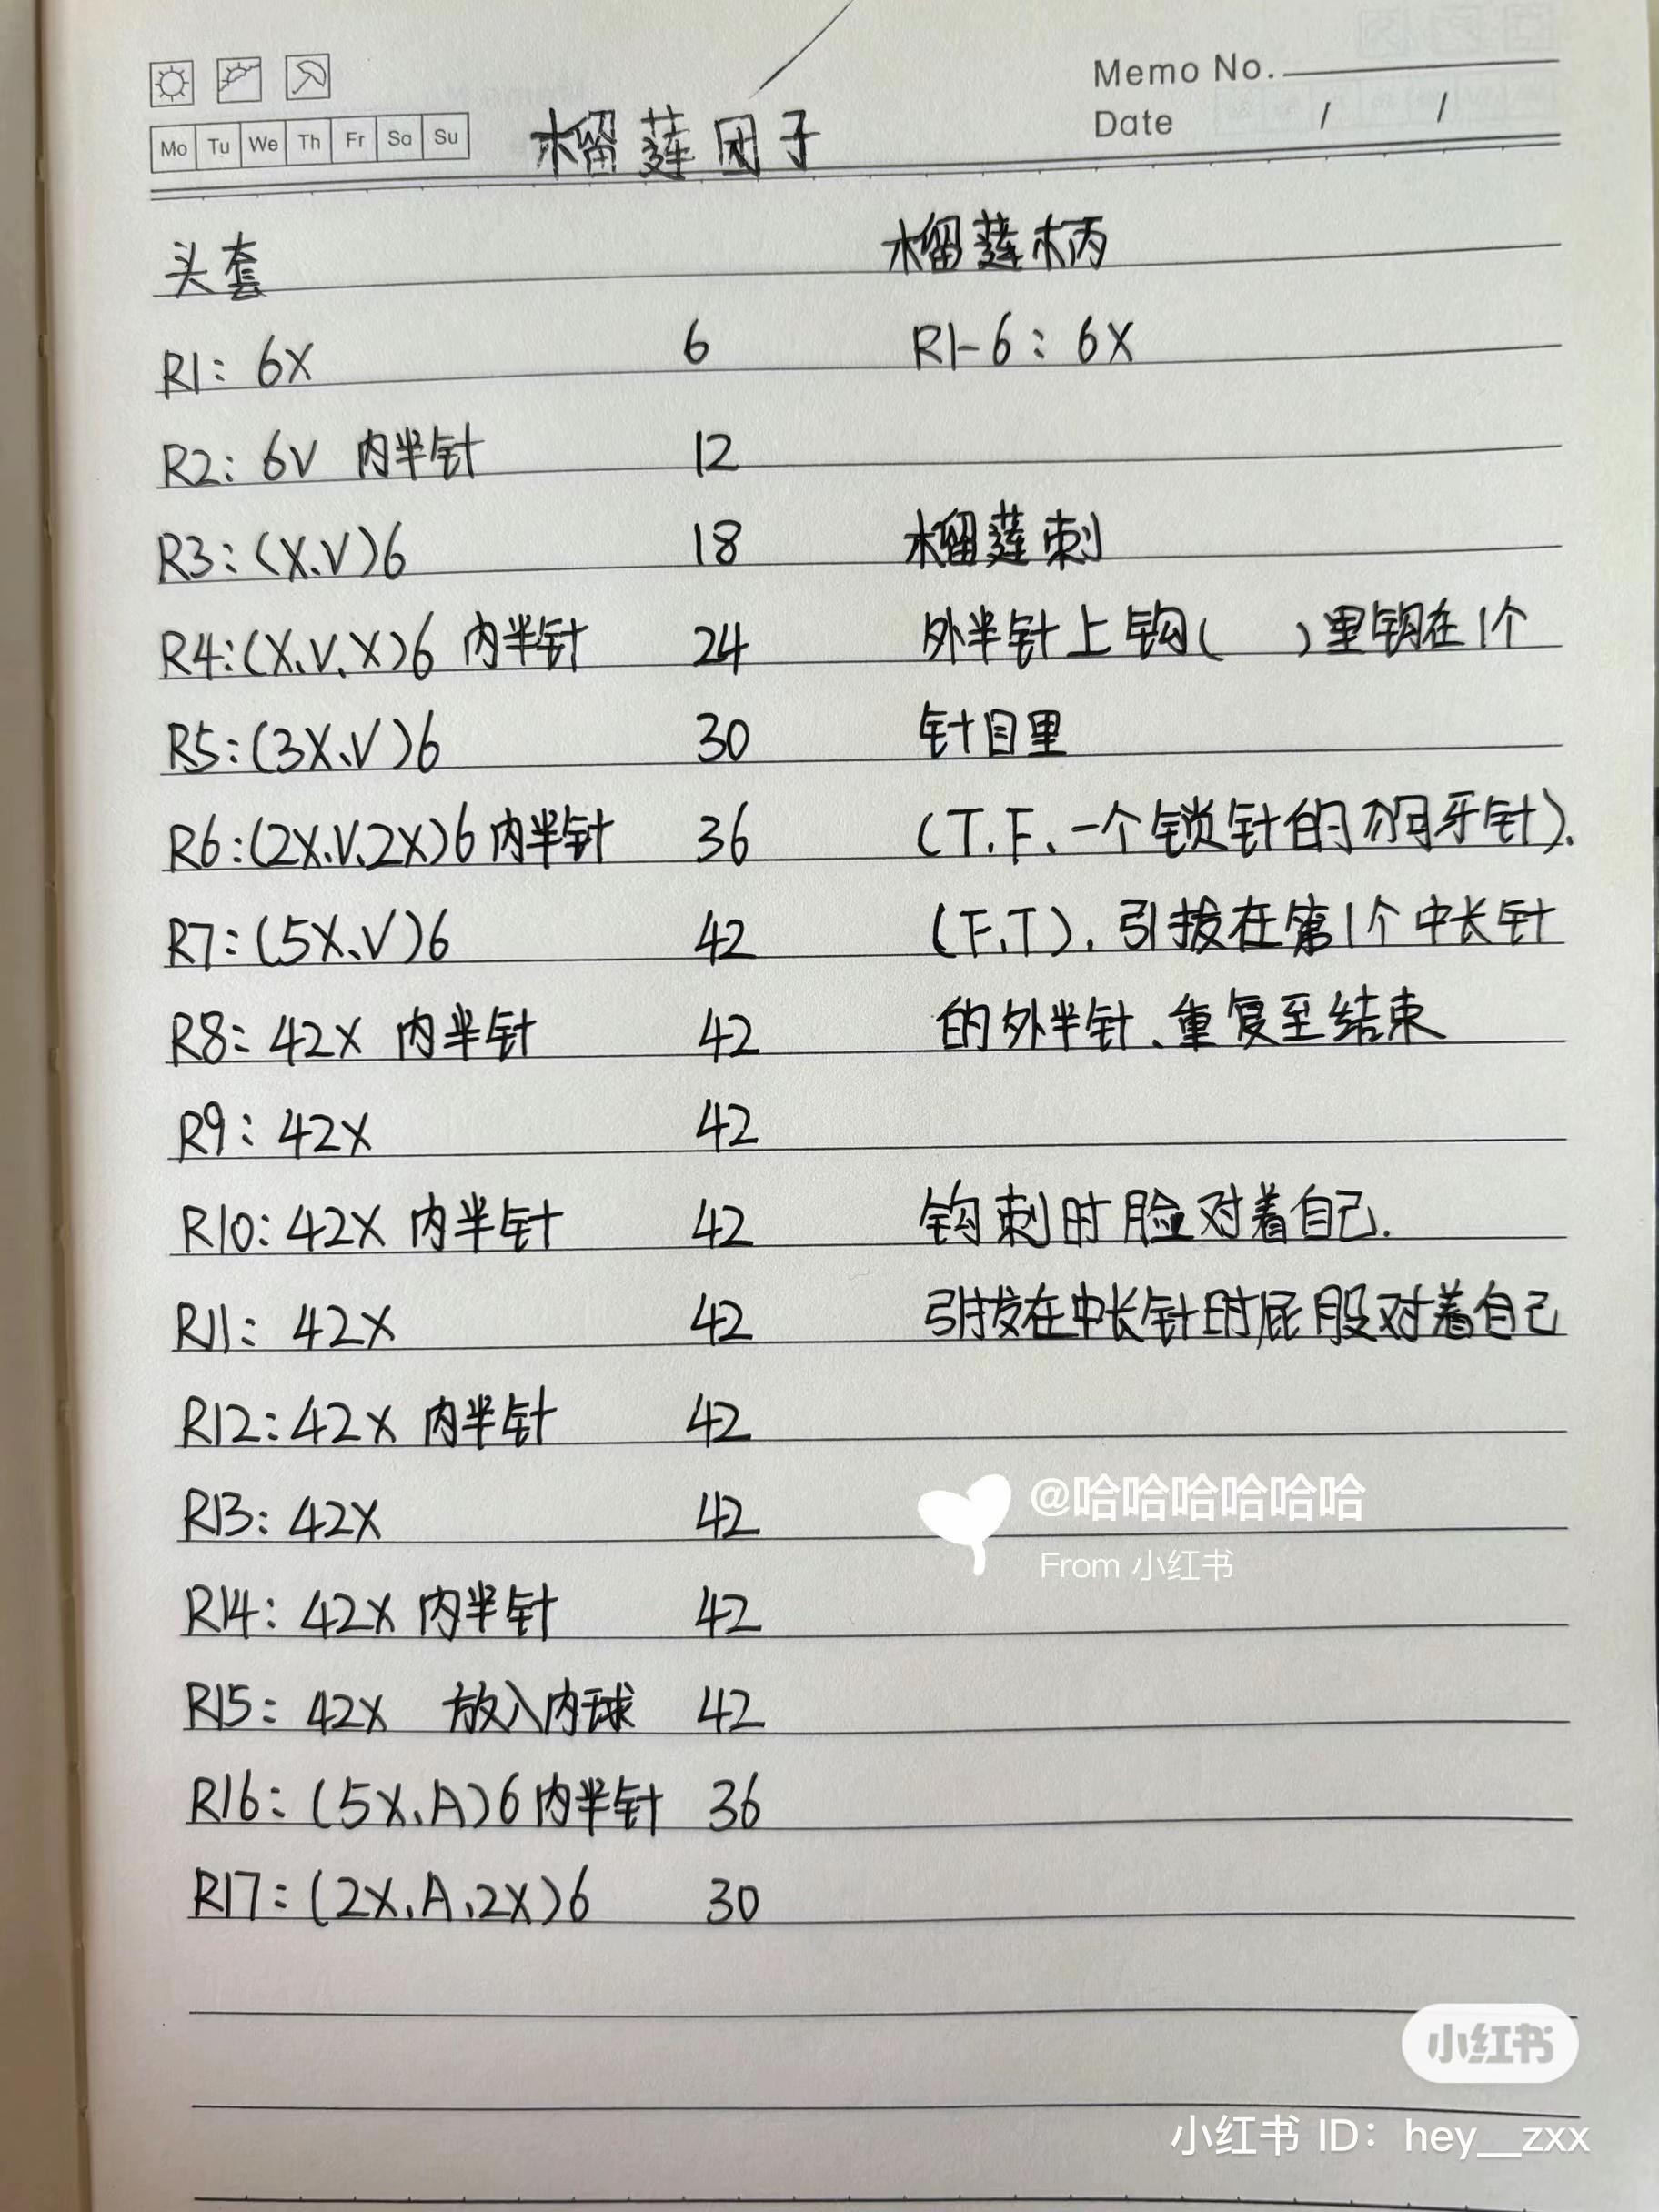 Memo No.
Mo Tu We Th Fr Sa Su
Date / /
榴莲团子
头套
R1: 6X 6
R2: 6V 内半针 12
R3: (X、V)6 18
R4: (X、V、X)6 内半针 24
R5: (3X、V)6 30
R6: (2X、V、2X)6 内半针 36
R7: (5X、V)6 42
R8: 42X 内半针 42
R9: 42X 42
R10: 42X 内半针 42
R11: 42X 42
R12: 42X 内半针 42
R13: 42X 42
R14: 42X 内半针 42
R15: 42X 放入内球 42
R16: (5X、A)6 内半针 36
R17: (2X、A、2X)6 30
榴莲柄
R1-6: 6X
榴莲刺
外半针上钩( )里钩在1个
针目里
(T、F、一个锁针的狗牙针).
(F、T), 引拔在第1个中长针
的外半针、重复至结束
钩刺时脸对着自己.
引拔在中长针时屁股对着自己
@哈哈哈哈哈哈
From 小红书
小红书
小红书 ID: hey__zxx